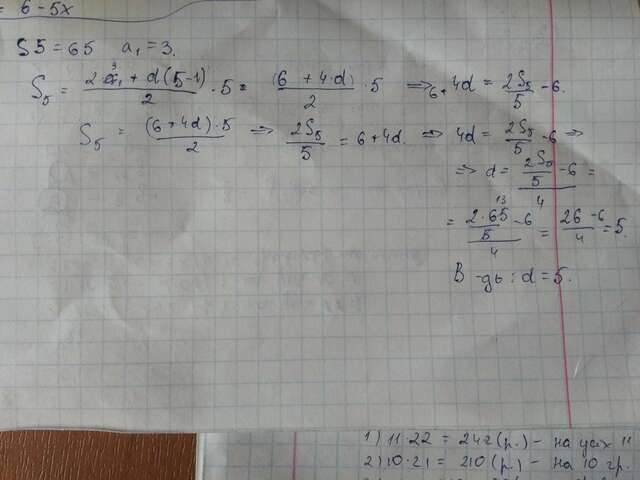 = 6 - 5x
S5 = 65   a₁ = 3.
S₅ = (2·a₁ + d(5-1))/2 · 5 = (6 + 4·d)/2 · 5 ⟹ 4d = 2S₅/5 - 6.
S₅ = (6 + 4d)·5/2 ⟹ 2S₅/5 = 6 + 4d. ⟹ 4d = 2S₅/5 - 6 ⟹
⟹ d = (2S₅/5 - 6)/4 =
= (2·65/5 - 6)/4 = (26 - 6)/4 = 5.
В-дь: d = 5.
1) 11·22 = 242 (р.) - на усіх 11
2) 10·21 = 210 (р.) - на 10 гр.